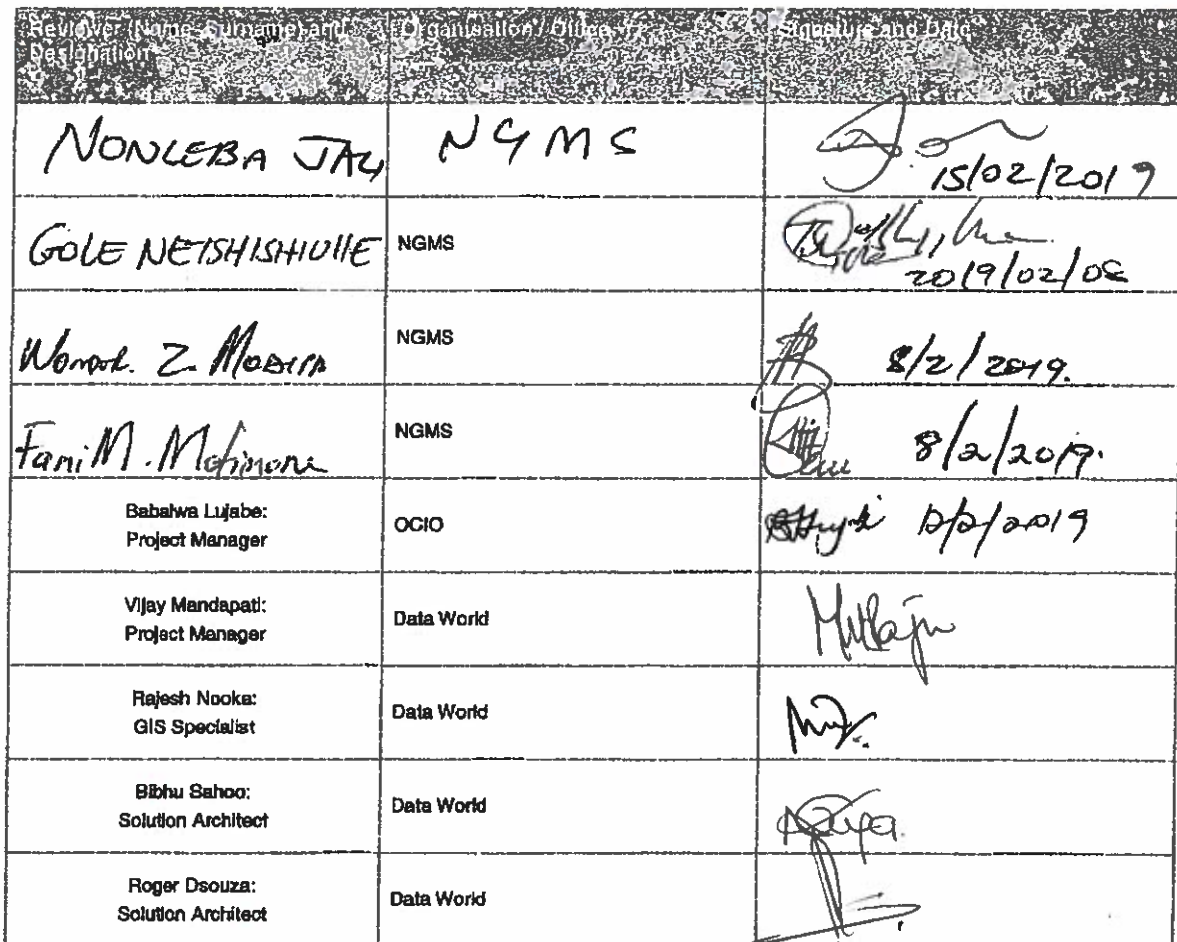 Reviewer (Name, Surname) and Designation
Organisation / Office
Signature and Date
NONCEBA JALI
NGMS
15/02/2019
GOLE NETSHISHIVHE
NGMS
2019/02/08
Z.
NGMS
8/2/2019.
Fani M.
NGMS
8/2/2019.
Babalwa Lujabe:
Project Manager
OCIO
12/2/2019
Vijay Mandapati:
Project Manager
Data World
Rajesh Nooka:
GIS Specialist
Data World
Bibhu Sahoo:
Solution Architect
Data World
Roger Dsouza:
Solution Architect
Data World